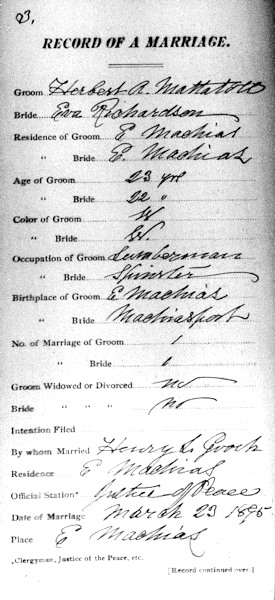 3,
RECORD OF A MARRIAGE.
Groom Herbert A. Mattatall
Bride Eva Richardson
Residence of Groom E Machias
" Bride E. Machias
Age of Groom 23 yrs
" Bride 22 "
Color of Groom W
" Bride W.
Occupation of Groom Lumberman
" Bride Spinster
Birthplace of Groom E Machias
" Bride Machiasport
No. of Marriage of Groom 1
" Bride 1
Groom Widowed or Divorced no
Bride " " " no
Intention Filed
By whom Married Henry L.
Residence E Machias
Official Station* Justice of Peace
Date of Marriage March 23 1895
Place E Machias
*Clergyman, Justice of the Peace, etc.
[Record continued over.]